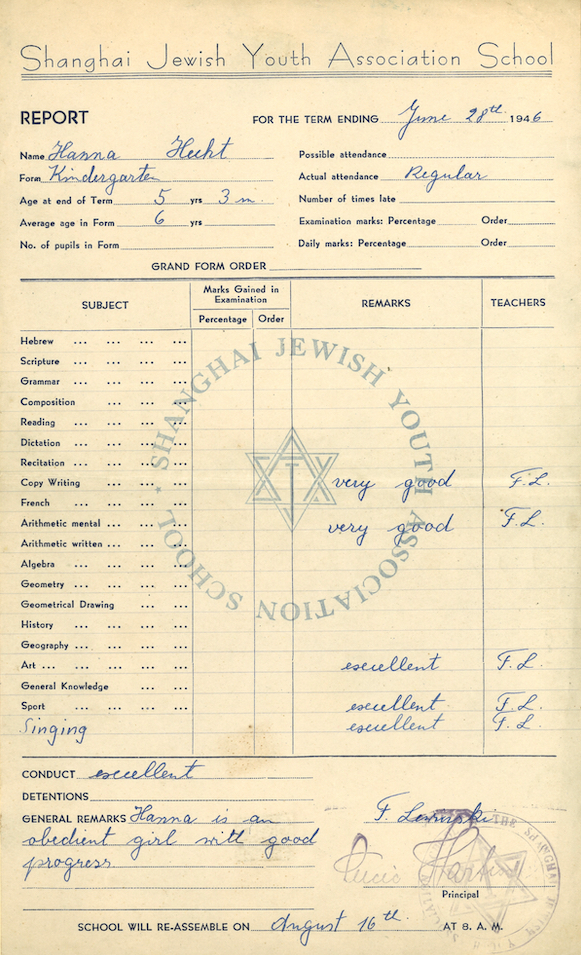 Shanghai Jewish Youth Association School
REPORT
FOR THE TERM ENDING June 28th 1946
Name Hanna Hecht
Form Kindergarten
Age at end of Term 5 yrs 3 m.
Average age in Form 6 yrs
No. of pupils in Form
Possible attendance
Actual attendance Regular
Number of times late
Examination marks: Percentage Order
Daily marks: Percentage Order
GRAND FORM ORDER
SUBJECT
Marks Gained in
Examination
Percentage Order
REMARKS
TEACHERS
Hebrew
Scripture
Grammar
Composition
Reading
Dictation
Recitation
Copy Writing very good F.L.
French
Arithmetic mental very good F.L.
Arithmetic written
Algebra
Geometry
Geometrical Drawing
History
Geography
Art excellent F.L.
General Knowledge
Sport excellent F.L.
Singing excellent F.L.
SHANGHAI JEWISH YOUTH ASSOCIATION SCHOOL
CONDUCT excellent
DETENTIONS
GENERAL REMARKS Hanna is an
obedient girl with good
progress
F.
Principal
THE SHANGHAI JEWISH
SCHOOL WILL RE-ASSEMBLE ON August 16th AT 8. A.M.